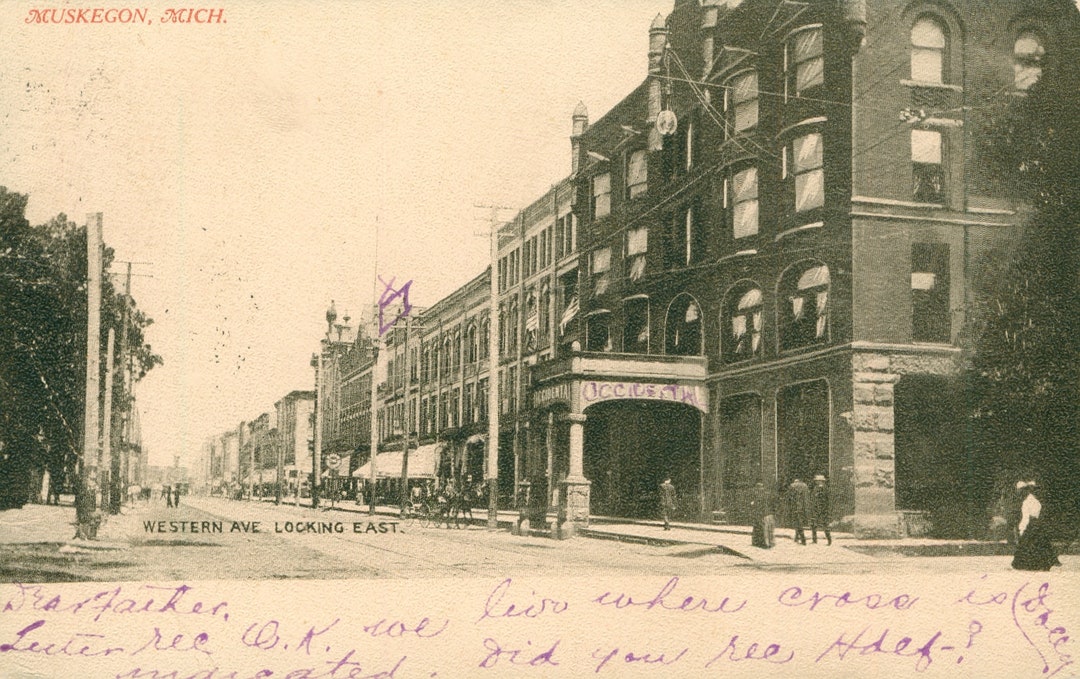 MUSKEGON, MICH.
OCCIDENTAL
WESTERN AVE LOOKING EAST.
Dear Father, live where cross is
Letter rec O.K. we Did you rec Hdcf-?
indicated.
Dolly